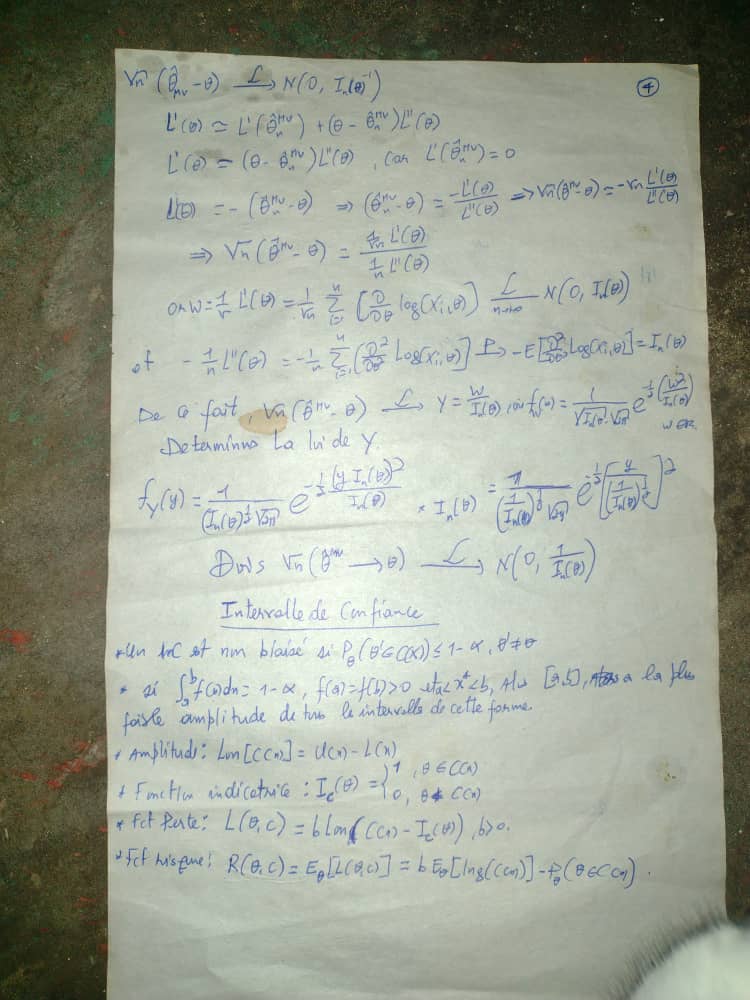 √n (θ̂_mv - θ) —L→ N(0, I_n(θ)^-1)
④
L'(θ) ≃ L'(θ̂_n^mv) + (θ - θ̂_n^mv) L''(θ)
L'(θ) ≃ (θ - θ̂_n^mv) L''(θ), car L'(θ̂_n^mv) = 0
L'(θ) = - (θ̂_n^mv - θ) ⇒ (θ̂_n^mv - θ) = -L'(θ)/L''(θ) ⇒ √n(θ̂^mv - θ) = -√n L'(θ)/L''(θ)
⇒ √n (θ̂^mv - θ) = (1/√n L'(θ))/(1/n L''(θ))
or W = 1/√ L'(θ) = 1/√n Σ_{i=1}^n [∂/∂θ log(x_i, θ)] —L→_{n→+∞} N(0, I_n(θ))
et - 1/n L''(θ) = -1/n Σ_{i=1}^n [∂²/∂θ² Log(x_i, θ)] —P→ -E[∂²/∂θ² Log(x_i, θ)] = I_n(θ)
De ce fait, √n (θ̂^mv - θ) —L→ Y = W/I_n(θ), où f_W(w) = 1/(√I_n(θ) . √2π) e^{-1/2 (w²/I_n(θ))} w∈R
Determinons La loi de Y
f_Y(y) = 1/((I_n(θ))^{1/2} √2π) e^{-1/2 (y I_n(θ))²/I_n(θ)} * I_n(θ) = 1/((1/I_n(θ))^{1/2} √2π) e^{-1/2 [y/(1/I_n(θ))^{1/2}]²}
Donc √n (θ̂^mv → θ) —L→ N(0, 1/I_n(θ))
Intervalle de Confiance
* Un InC est non biaisé si P_θ(θ' ∈ C(X)) ≤ 1 - α, θ' ≠ θ
* si ∫_a^b f(x)dx = 1 - α, f(a) = f(b) > 0 et a < x* < b, Alors [a, b], a la plus
faible amplitude de tous le intervalle de cette forme.
* Amplitude : Lon[C(x)] = U(x) - L(x)
* Fonction indicatrice : I_c(θ) = { 1, θ ∈ C(x)
0, θ ∉ C(x)
* Fct Perte : L(θ, c) = b Lon(C(x) - I_c(θ)), b > 0.
* Fct risque : R(θ, C) = E_θ[L(θ, c)] = b E_θ[long(C(x))] - P_θ(θ ∈ C(x)).